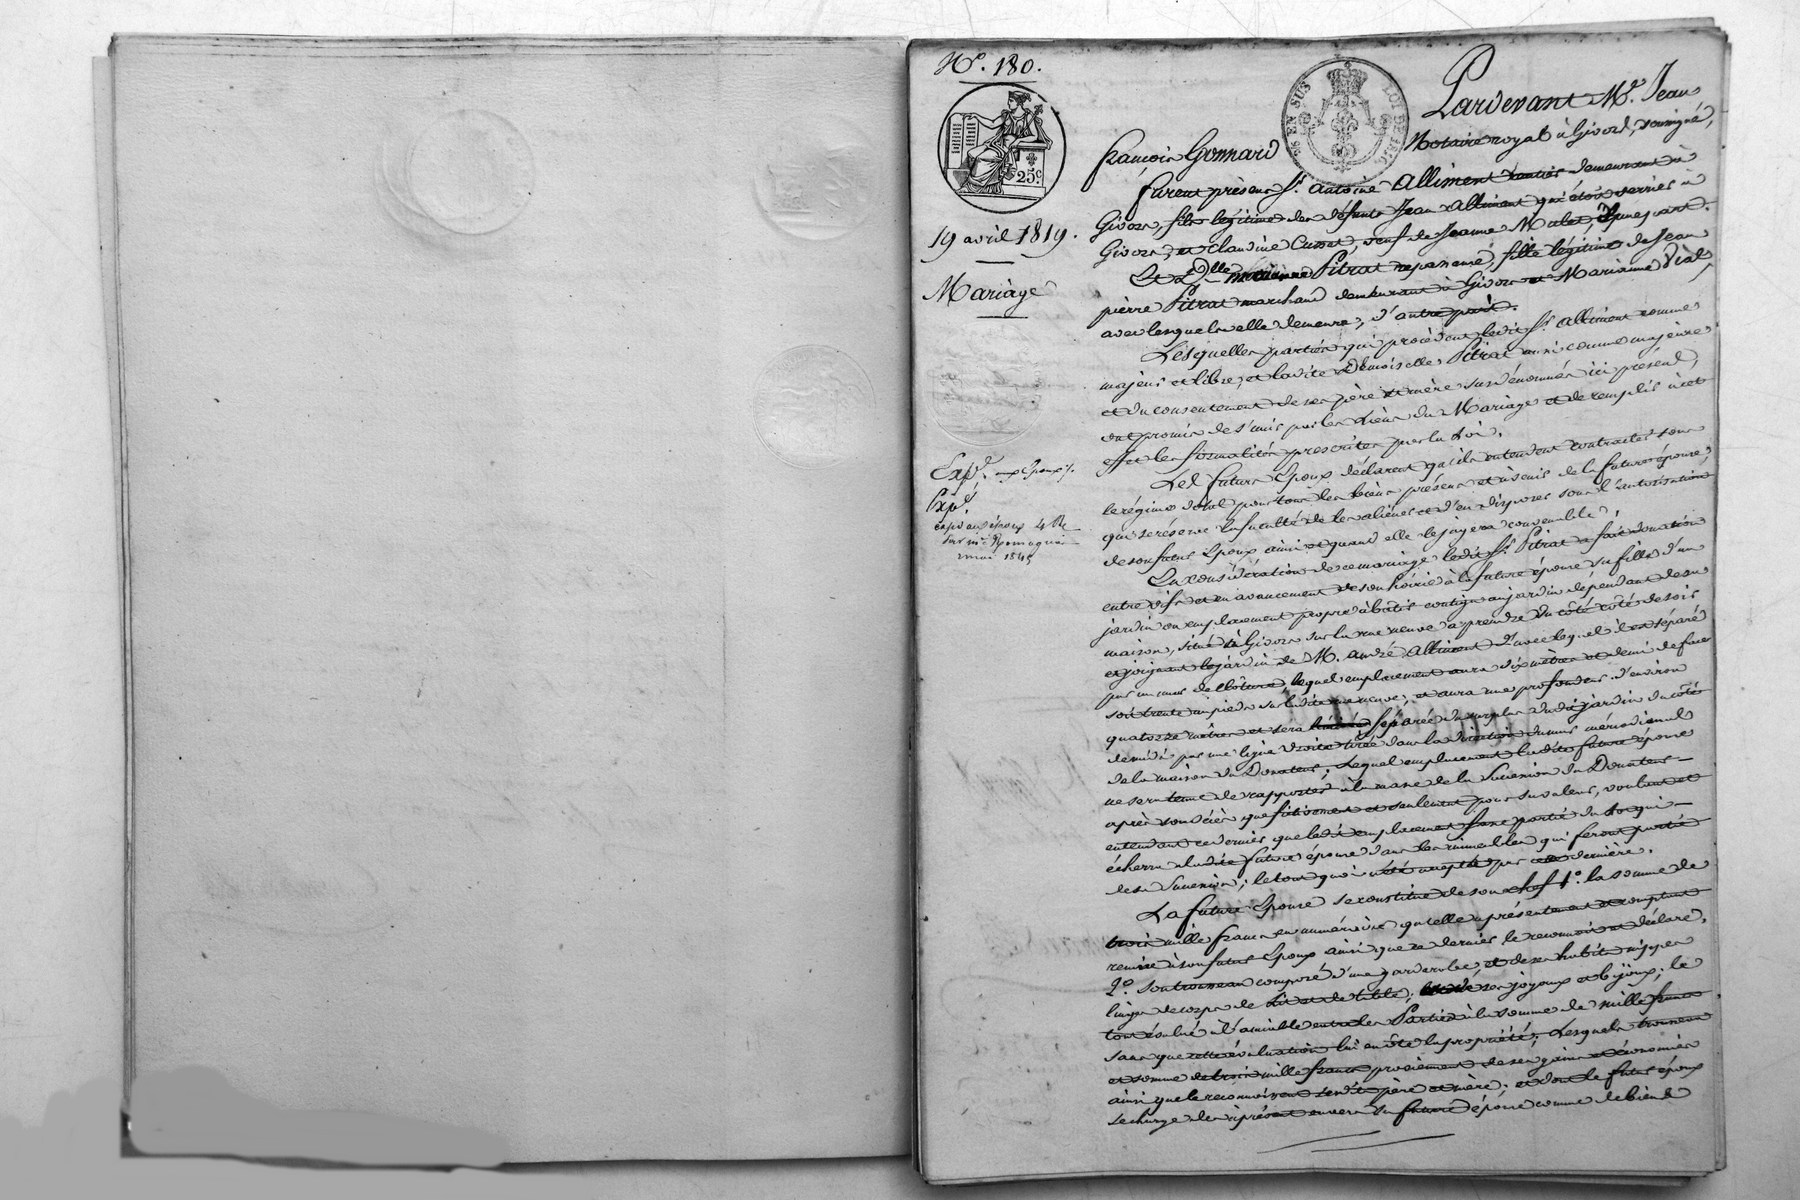 N.o 180.
25c.
TIMB. EN SUS
LOI DE 1816
19 avril 1819.
Mariage
Exp.on aux Epoux /.
Exp.
mai 1845
Pardevant M.e Jean
françois Gonnard Notaire royal à Givors, soussigné,
furent présens S.r Antoine Alliment rentier demeurant à
Givors, fils légitime des défunts Jean Alliment qui étoit verrier à
Givors, et Claudine Cusset, veuf de Jeanne Mulet, D'une part.
Et D.lle Pitrat repasseuse, fille légitime de Jean
pierre Pitrat marchand demeurant à Givors et Marianne Vial,
avec lesquels elle demeure, d'autre part.
Lesquelles parties qui procèdent ledit S.r Alliment comme
majeur et libre, et ladite Demoiselle Pitrat aussi comme majeure
et du consentement de ses père et mère susdénommés ici présens,
ont promis de s'unir par les Liens du Mariage et de remplir à cet
effet les formalités prescrites par la Loi.
Les futurs Epoux déclarent qu'ils entendent contracter sous
le régime dotal pour tous les biens présens et à venir de la future épouse,
qui se réserve la faculté de les aliéner et d'en disposer sous l'autorisation
de son futur Epoux ainsi et quand elle le jugera convenable.
En considération de ce mariage ledit S.r Pitrat a fait donation
entre vifs et en avancement de son hoirie à la future épouse sa fille d'un
jardin ou emplacement propre à bâtir contigu au jardin dépendant de sa
maison, situé à Givors sur la rue neuve à prendre du côté de soir
et joignant le jardin de M. André Alliment d'avec lequel il est séparé
par un mur de clôture, lequel emplacement aura dix mètres et demi de face
soit trente un pieds sur ladite rue neuve, et aura une profondeur d'environ
quatorze mètres et sera séparé du surplus dudit jardin du côté
de midi par une ligne droite tirée dans la direction du mur méridional
de la maison du Donateur; Lequel emplacement ladite future épouse
ne sera tenue de rapporter à la masse de la Succession du Donateur
après son décès que fictivement et seulement pour sa valeur, voulant et
entendant ce dernier que ledit emplacement fasse partie du lot qui
écherra à ladite future épouse dans les immeubles qui feront partie
de sa Succession; le tout quoi a été accepté par cette dernière.
La future Epouse se constitue de son chef 1.o la somme de
trois mille francs en numéraire qu'elle a présentement et comptant
remise à son futur Epoux ainsi que ce dernier le reconnoit et déclare,
2.o son trousseau composé d'une garderobe, et de ses habits nippes
linges de corps de Lit et de table; ses joyaux et bijoux; le
tout évalué à l'amiable entre les Parties à la somme de mille francs
sans que cette évaluation lui en ôte la propriété; Lesquels trousseau
et somme de trois mille francs proviennent de ses gains et économies
ainsi que le reconnoissent sesdits père et mère; et dont le futur époux
se charge dès à présent envers sa future épouse comme de biens